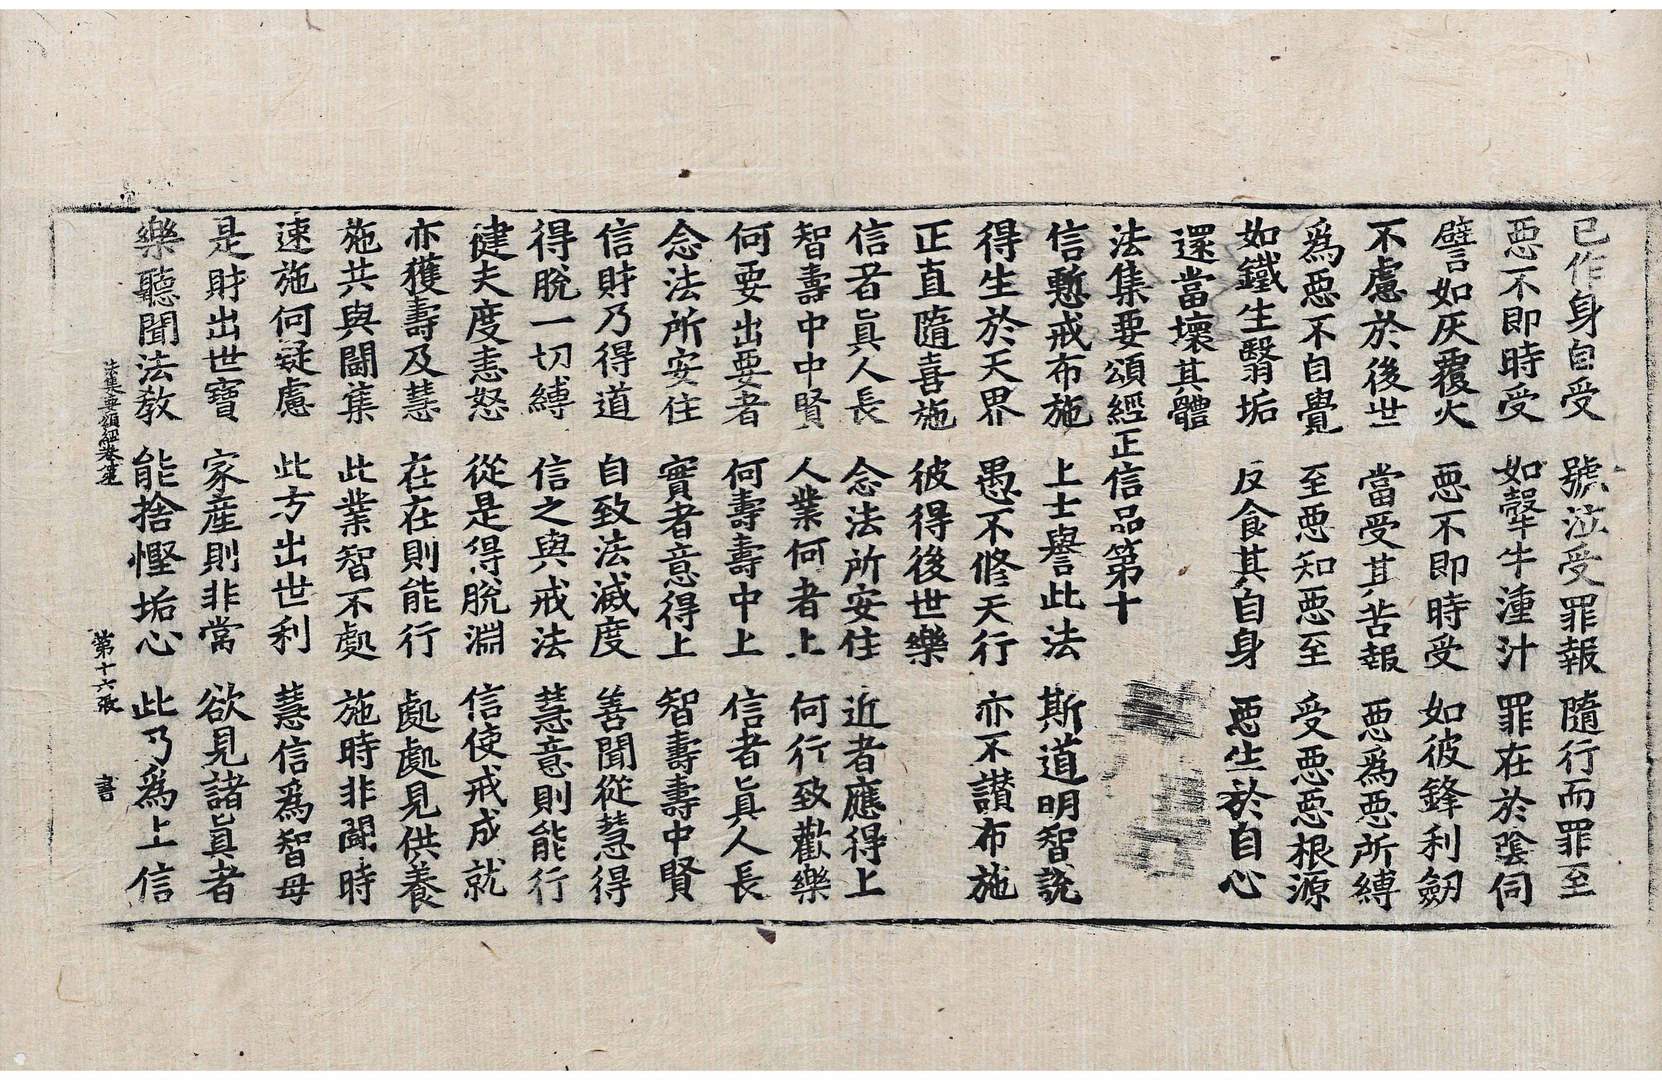 已作身自受 號泣受罪報 隨行而罪至
惡不即時受 如𤚲牛湩汁 罪在於陰伺
譬如灰覆火 惡不即時受 如彼鋒利劒
不慮於後世 當受其苦報 惡為惡所縛
為惡不自覺 至惡知惡至 受惡惡根源
如鐵生翳垢 反食其自身 惡生於自心
還當壞其體
法集要頌經正信品第十
信慙戒布施 上士譽此法 斯道明智說
得生於天界 愚不修天行 亦不讃布施
正直隨喜施 彼得後世樂
信者眞人長 念法所安住 近者應得上
智壽中中賢 人業何者上 何行致歡樂
何要出要者 何壽壽中上 信者眞人長
念法所安住 實者意得上 智壽壽中賢
信財乃得道 自致法滅度 善聞從慧得
得脫一切縛 信之與戒法 慧意則能行
健夫度恚怒 從是得脫淵 信使戒成就
亦獲壽及慧 在在則能行 處處見供養
施共與鬪集 此業智不處 施時非鬪時
速施何疑慮 此方出世利 慧信為智母
是財出世寶 家産則非常 欲見諸眞者
樂聽聞法教 能捨慳垢心 此乃為上信
法集要頌經卷第 第十六張 書